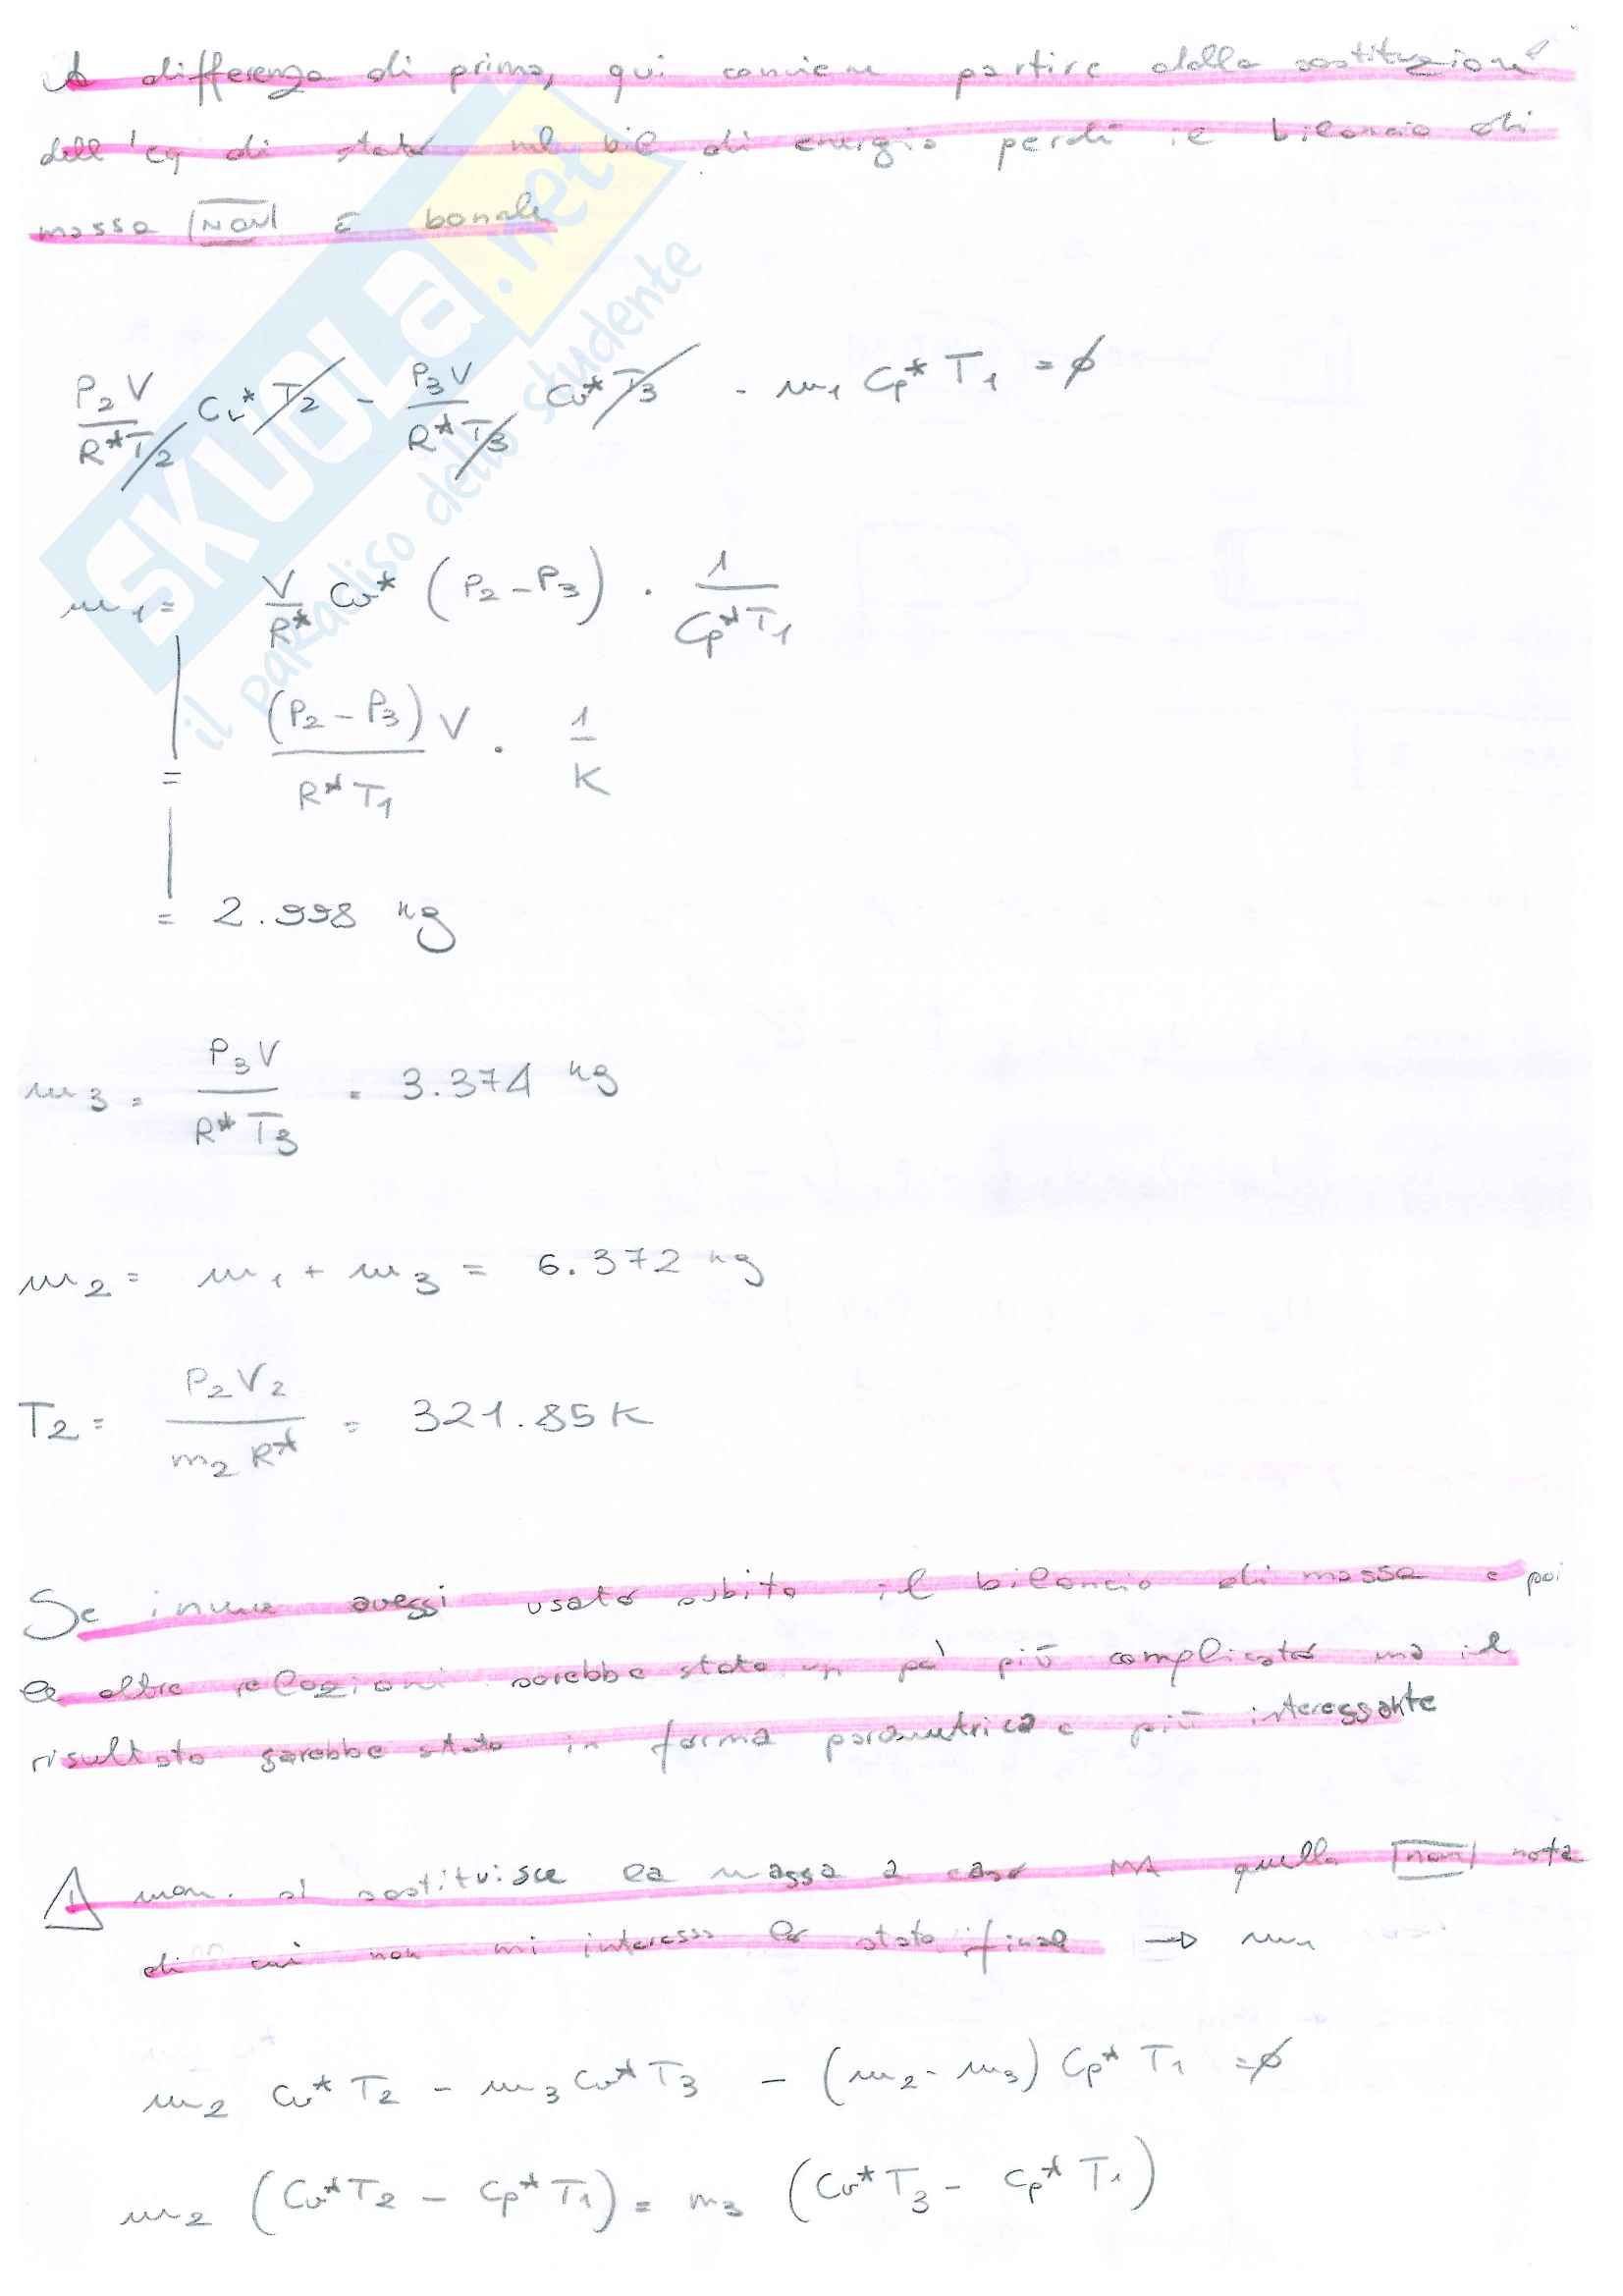 A differenza di prima, qui conviene partire dalla sostituzione
dell'eq di stato nel bil di energia perché il bilancio di
massa NON È banale
SKUOLA.net
il paradiso dello studente
P2V/(R*T2) Cv*T2 - P3V/(R*T3) Cv*T3 - m1 Cp*T1 = ∅
m1 = V/R* Cv* (P2-P3) · 1/(Cp*T1)
= (P2-P3)V/(R*T1) · 1/K
= 2.998 kg
m3 = P3V/(R*T3) = 3.374 kg
m2 = m1 + m3 = 6.372 kg
T2 = P2V2/(m2 R*) = 321.85 K
Se invece avessi usato subito il bilancio di massa e poi
le altre relazioni sarebbe stato un po' più complicato ma il
risultato sarebbe stato in forma parametrica e più interessante
⚠ non si sostituisce la massa a caso MA quella non nota
di cui non mi interessa lo stato finale → m1
m2 Cv*T2 - m3 Cv*T3 - (m2-m3) Cp*T1 = ∅
m2 (Cv*T2 - Cp*T1) = m3 (Cv*T3 - Cp*T1)